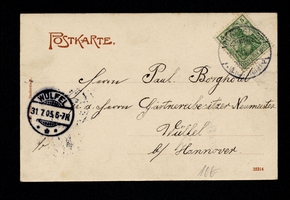 POSTKARTE.
Herrn Paul Borghold
p. Herrn Gärtnereibesitzer Neumeister
Wülfel
b/ Hannover
WÜLFEL
31.7.05.6-7N